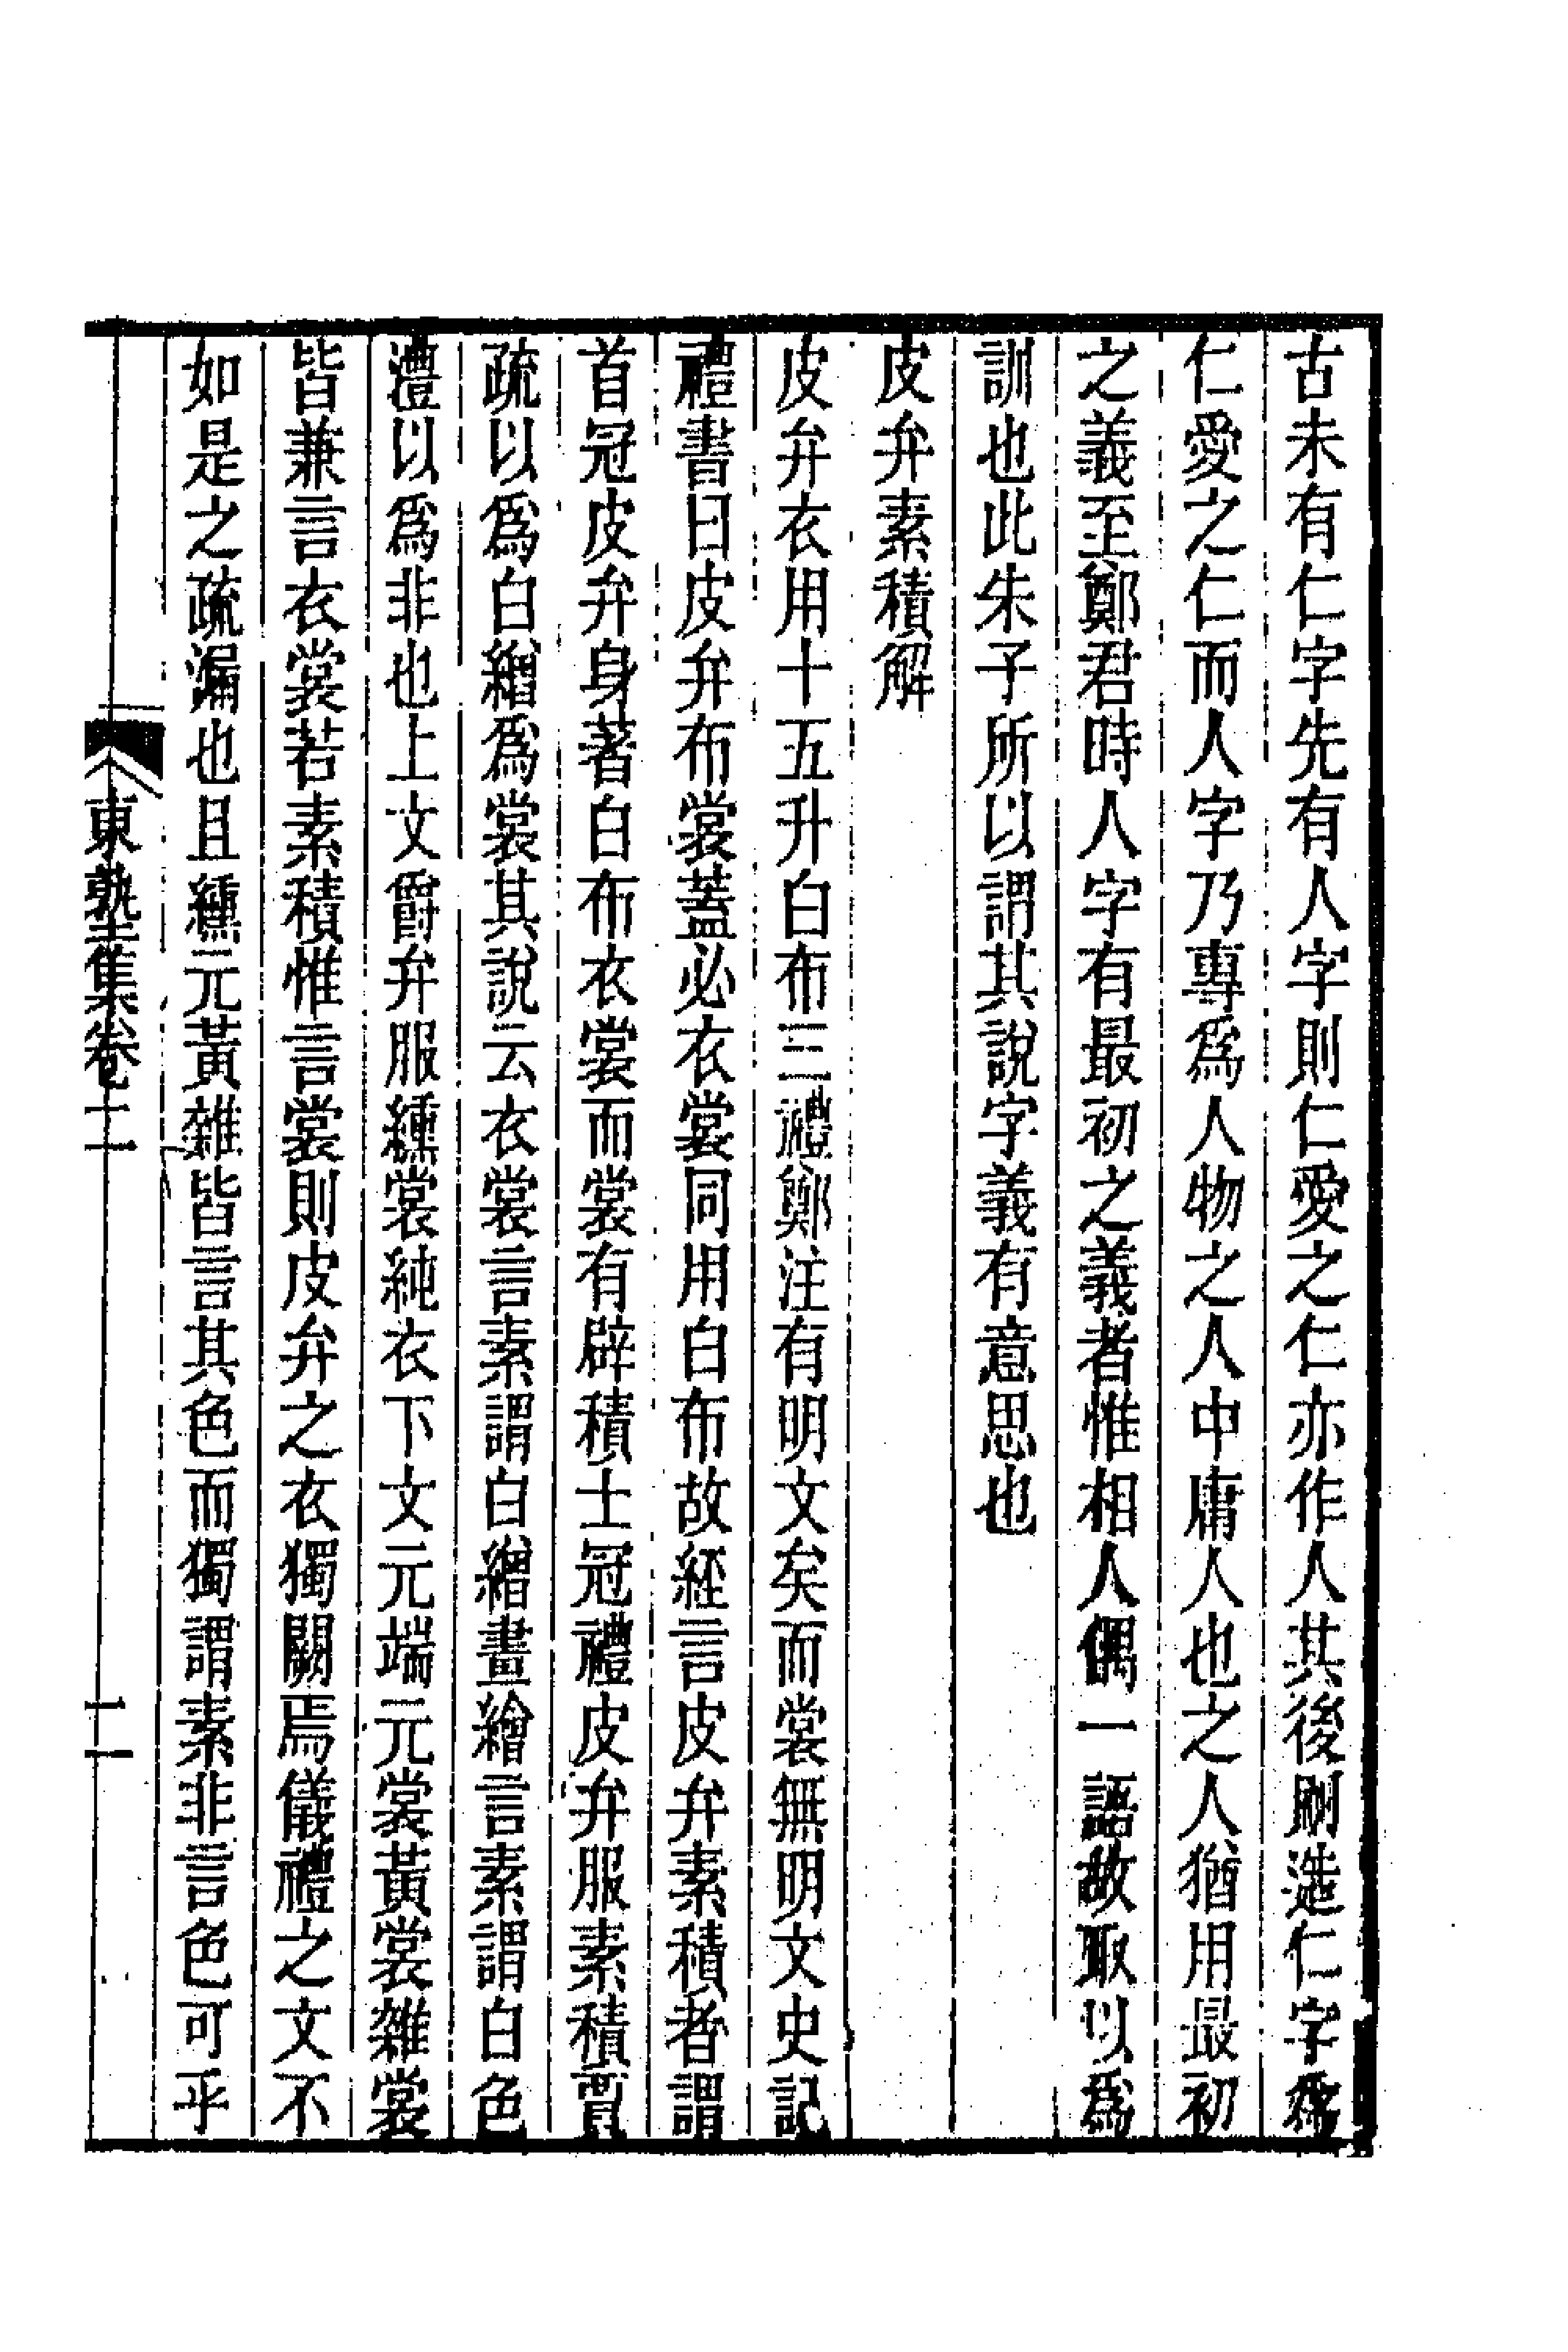 古未有仁字先有人字則仁愛之仁亦作人其後剏造仁字爲
仁愛之仁而人字乃專爲人物之人中庸人也之人猶用最初
之義至鄭君時人字有最初之義者惟相人偶一語故取以爲
訓也此朱子所以謂其說字義有意思也
皮弁素積解
皮弁衣用十五升白布三禮鄭注有明文矣而裳無明文史記
禮書曰皮弁布裳蓋必衣裳同用白布故經言皮弁素積者謂
首冠皮弁身著白布衣裳而裳有辟積士冠禮皮弁服素積賈
疏以爲白繒爲裳其說云衣裳言素謂白繒畫繪言素謂白色
澧以爲非也上文爵弁服纁裳純衣下文元端元裳黃裳雜裳
皆兼言衣裳若素積惟言裳則皮弁之衣獨闕焉儀禮之文不
如是之疏漏也且纁元黃雜皆言其色而獨謂素非言色可乎
東塾集卷一
二